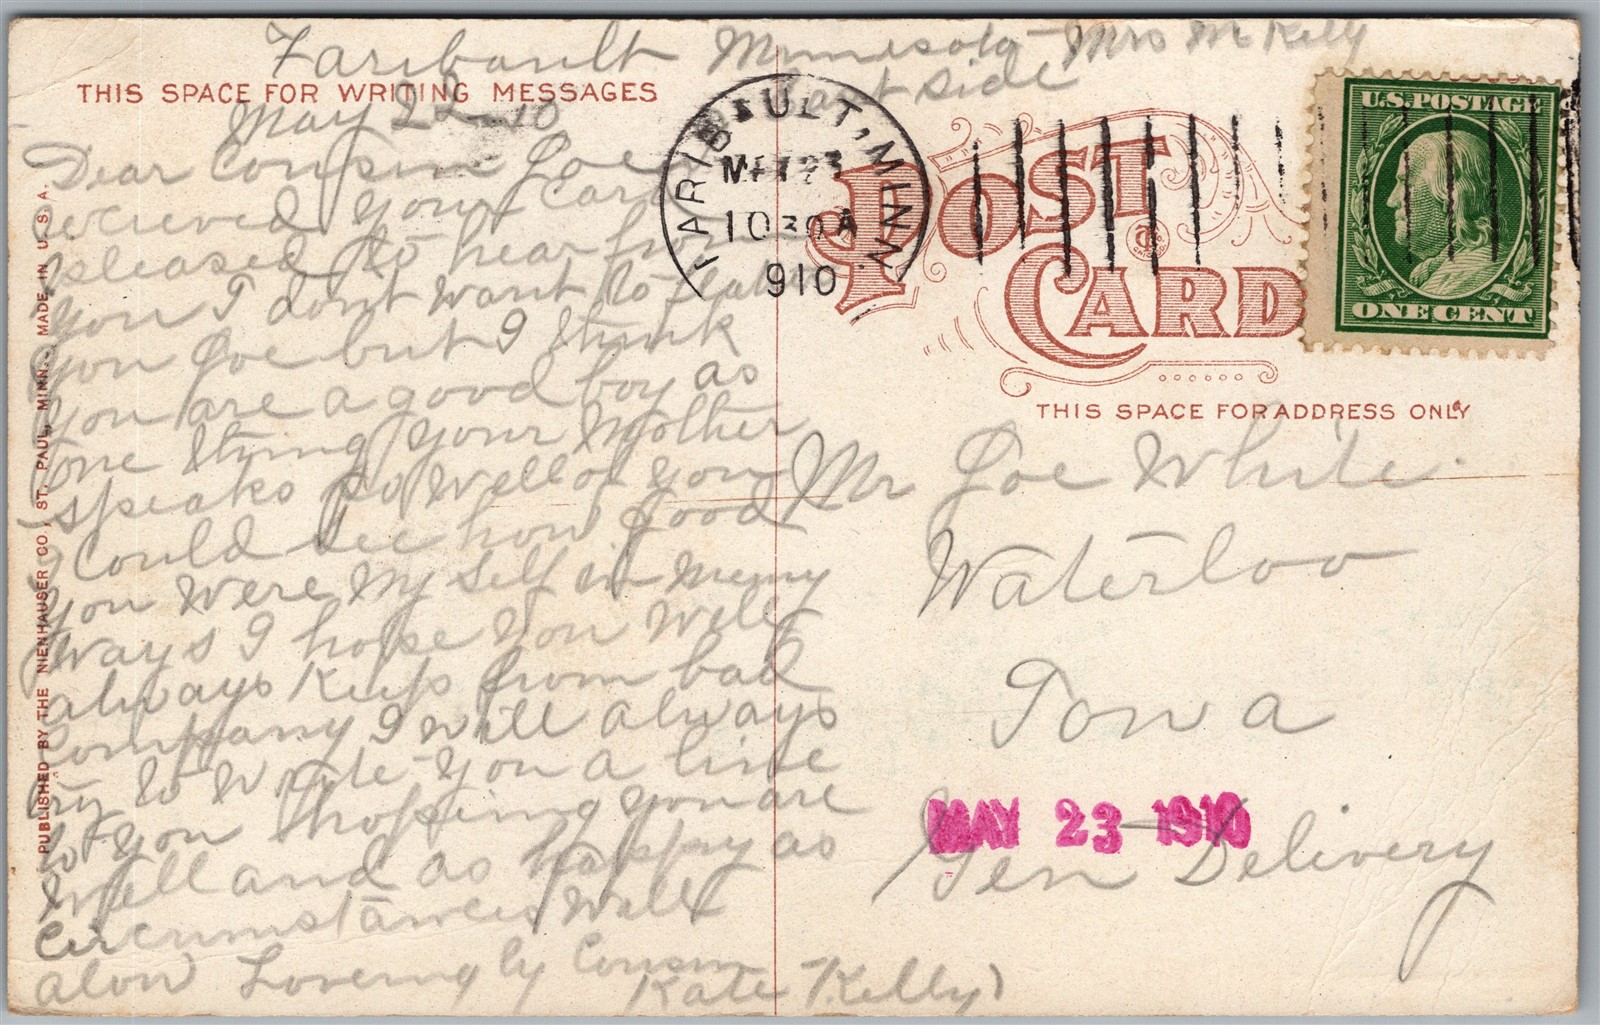 Faribault Minnesota Mrs M Kelly
east side
THIS SPACE FOR WRITING MESSAGES
May 22-10
Dear Cousin Joe
recieved your card
pleased to hear from
you I dont want to flatter
you Joe but I think
you are a good boy as
one thing your Mother
speaks so well of you
I could see how good
you were my self in meny
ways I hope you will
always keep from bad
company I will always
try to write you a line
to you hopeing you are
well and as happy as
circumstances will
alow Lovering ly Cousin
Kate Kelly
PUBLISHED BY THE NIENHAUSER CO., ST. PAUL, MINN., MADE IN U. S. A.
FARIBAULT, MINN.
MAY 23
1030A
910
POST
CARD
U.S. POSTAGE
ONE CENT
THIS SPACE FOR ADDRESS ONLY
Mr Joe White
Waterloo
Iowa
MAY 23 1910
Gen Delivery